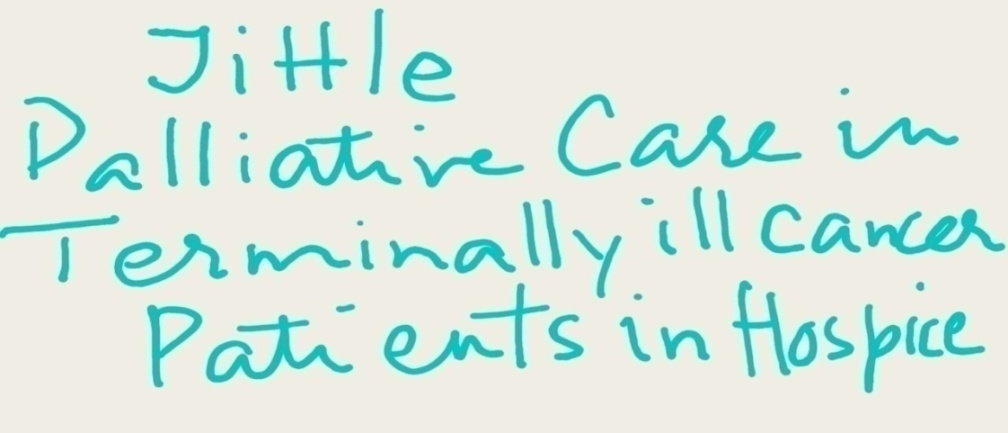 Jittle
Palliative Care in
Terminally ill cancer
Patients in Hospice